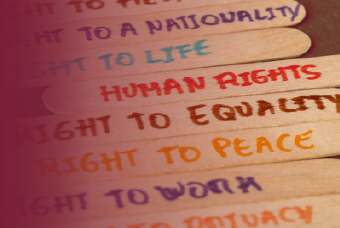 GHT TO
GHT TO A NATIONALITY
GHT TO LIFE
HUMAN RIGHTS
RIGHT TO EQUALITY
RIGHT TO PEACE
IGHT TO WORK
TO PRIVACY